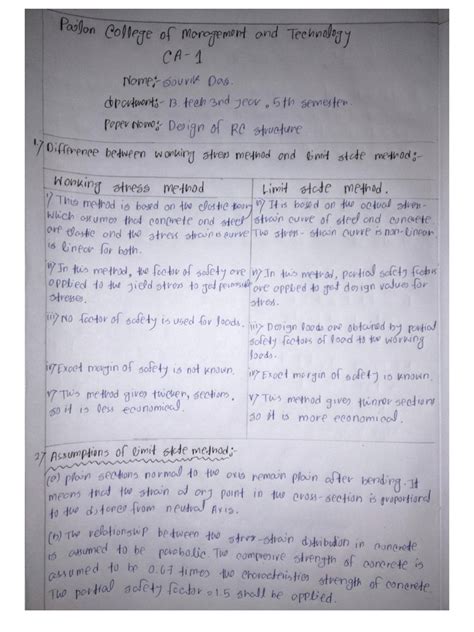 Pailan College of Management and Technology
CA-1
Name:- Souvik Das.
department:- B.tech 3rd year, 5th semester.
Paper Name:- Design of RC structure
1.) Difference between working stress method and limit state method:-
Working stress method
i) This method is based on the elastic theory
which assumes that concrete and steel
are elastic and the stress strain is curve
is linear for both.
ii) In this method, the factor of safety are
applied to the yield stress to get permissible
stresses.
iii) No factor of safety is used for loads.
iv) Exact margin of safety is not known.
v) This method gives thicker, sections,
so it is less economical.
Limit state method.
i) It is based on the actual stress-
strain curve of steel and concrete.
The stress-strain curve is non-linear.
ii) In this method, partial safety factors
are applied to get design values for
stress.
iii) Design loads are obtained by partial
safety factors of load to the working
loads.
iv) Exact margin of safety is known.
v) This method gives thinner sections
so it is more economical.
2) Assumptions of limit state method:-
(a) plain sections normal to the axis remain plain after bending. It
means that the strain at any point in the cross-section is proportional
to the distance from neutral Axis.
(b) The relationship between the stress-strain distribution in concrete
is assumed to be parabolic. The compressive strength of concrete is
assumed to be 0.67 times the characteristics strength of concrete.
The partial safety factor = 1.5 shall be applied.